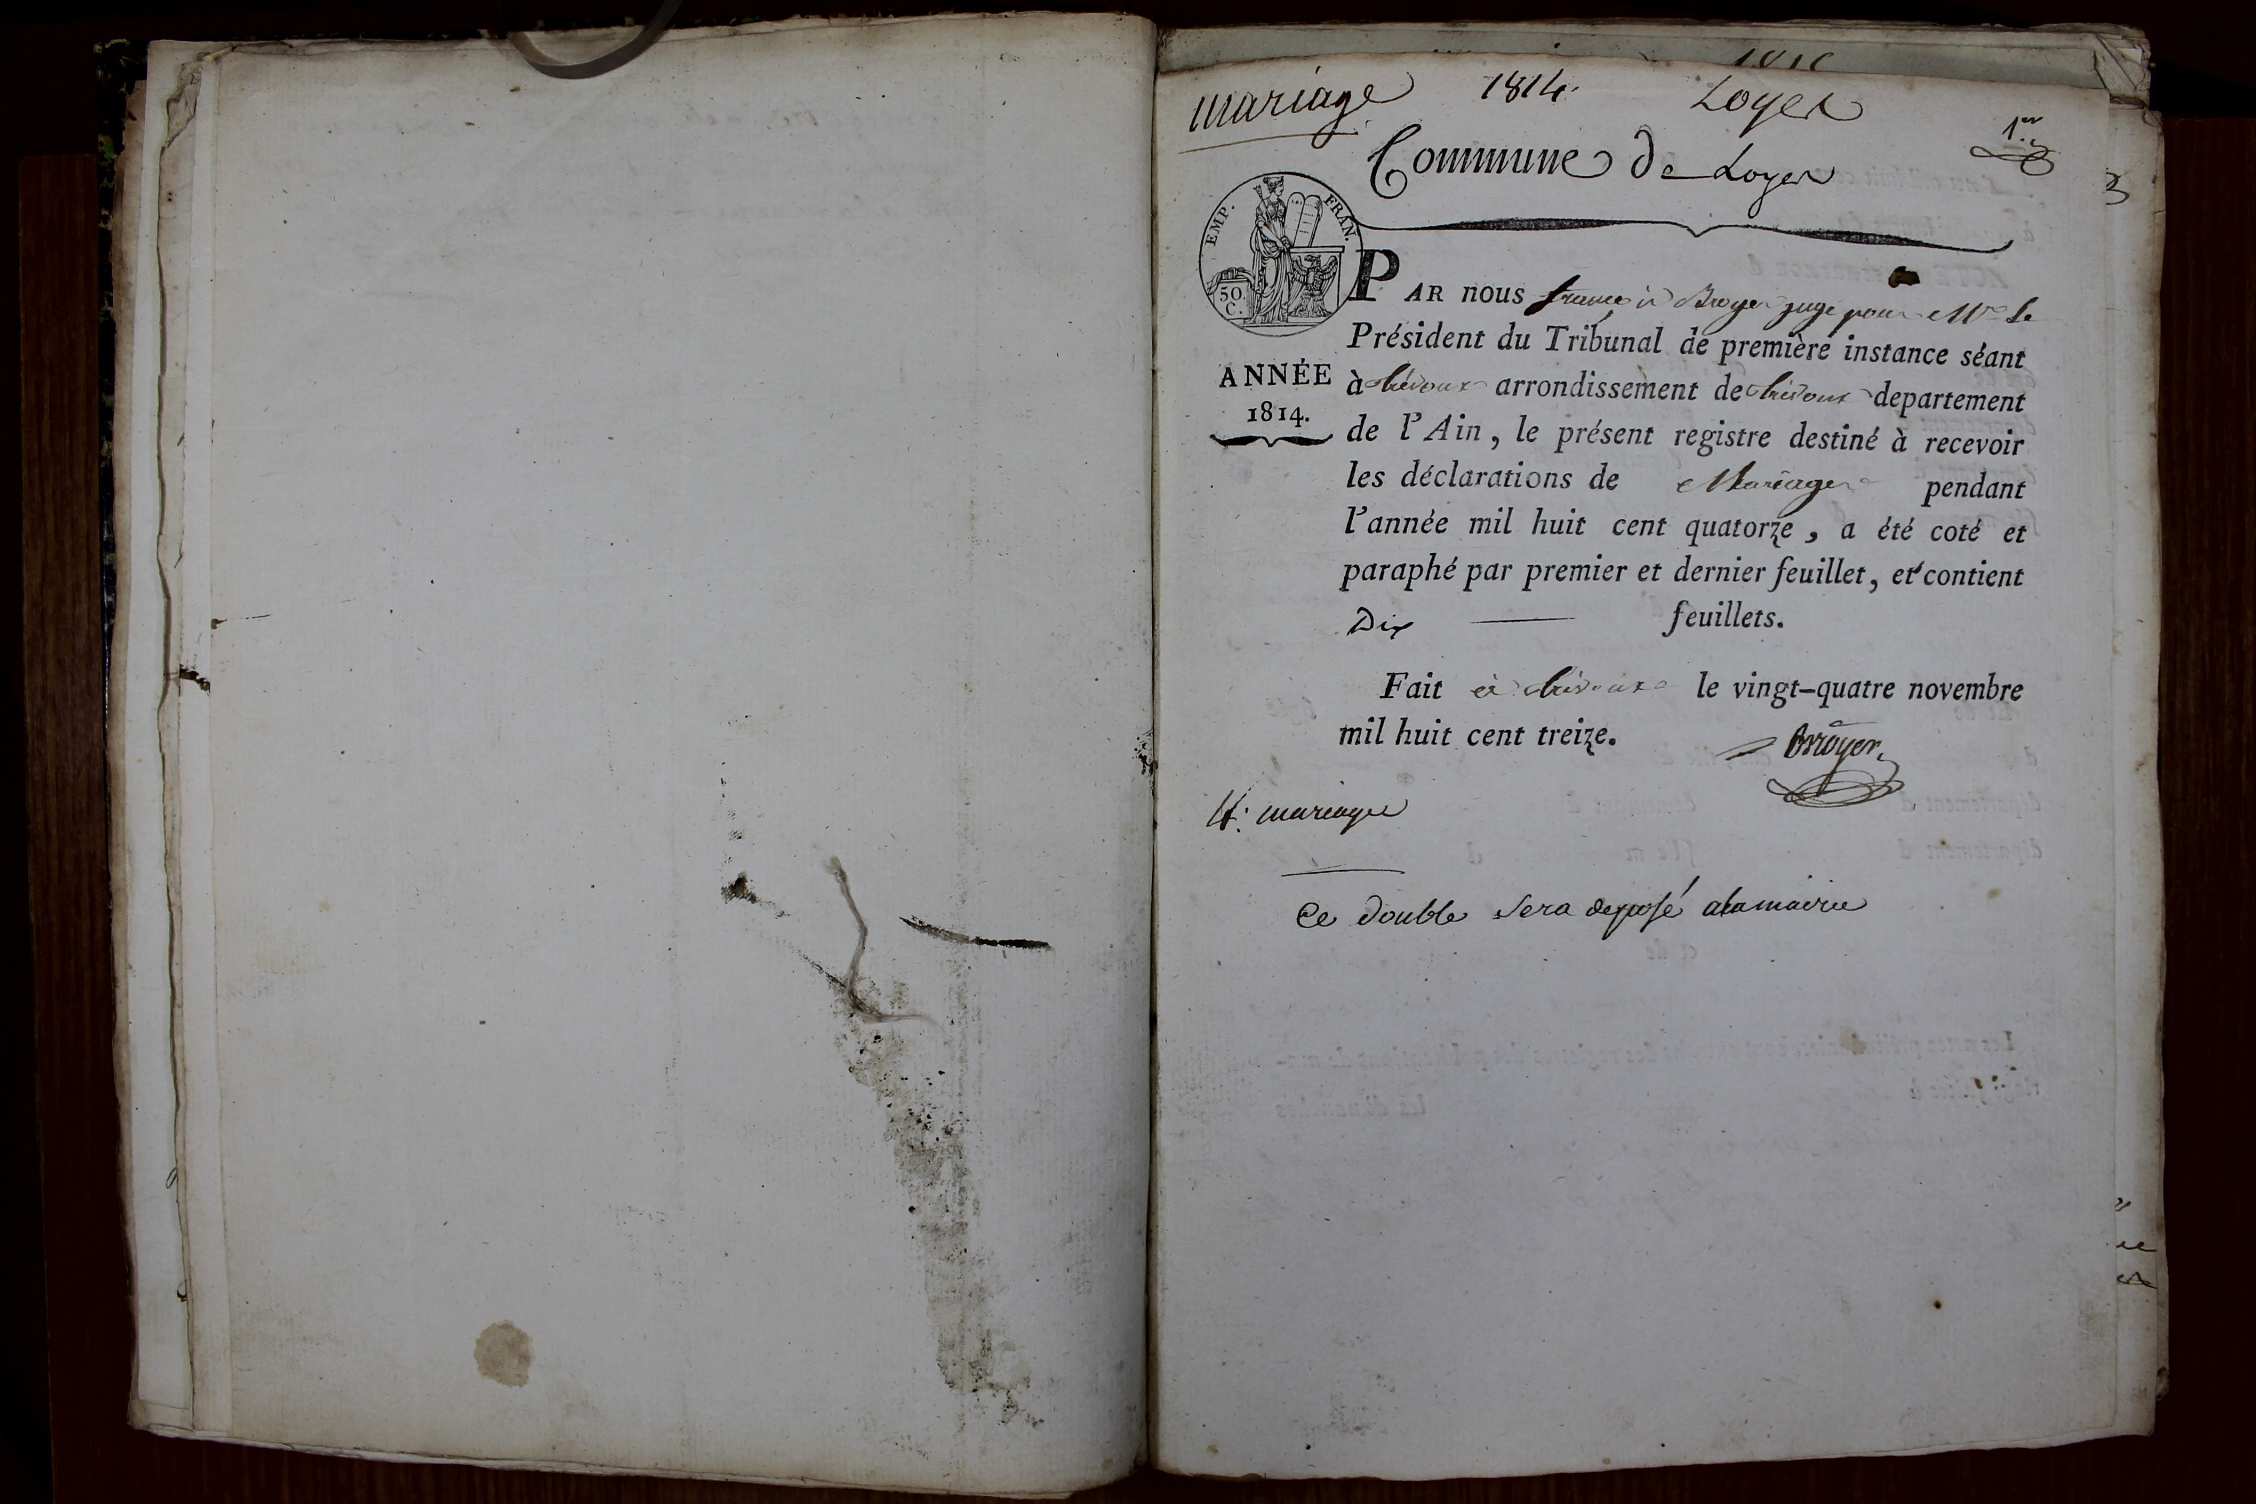 mariage 1814. Loyes
1.er
Commune de Loyes
EMP. FRAN.
50 C.
ANNÉE
1814.
PAR nous françois Brroyer juge pour Mr le
Président du Tribunal de première instance séant
à trévoux arrondissement de trévoux departement
de l'Ain, le présent registre destiné à recevoir
les déclarations de Mariages pendant
l'année mil huit cent quatorze, a été coté et
paraphé par premier et dernier feuillet, et contient
Dix feuillets.
Fait à trévoux le vingt-quatre novembre
mil huit cent treize.
Brroyer
4: mariages
Ce double sera deposé a la mairie